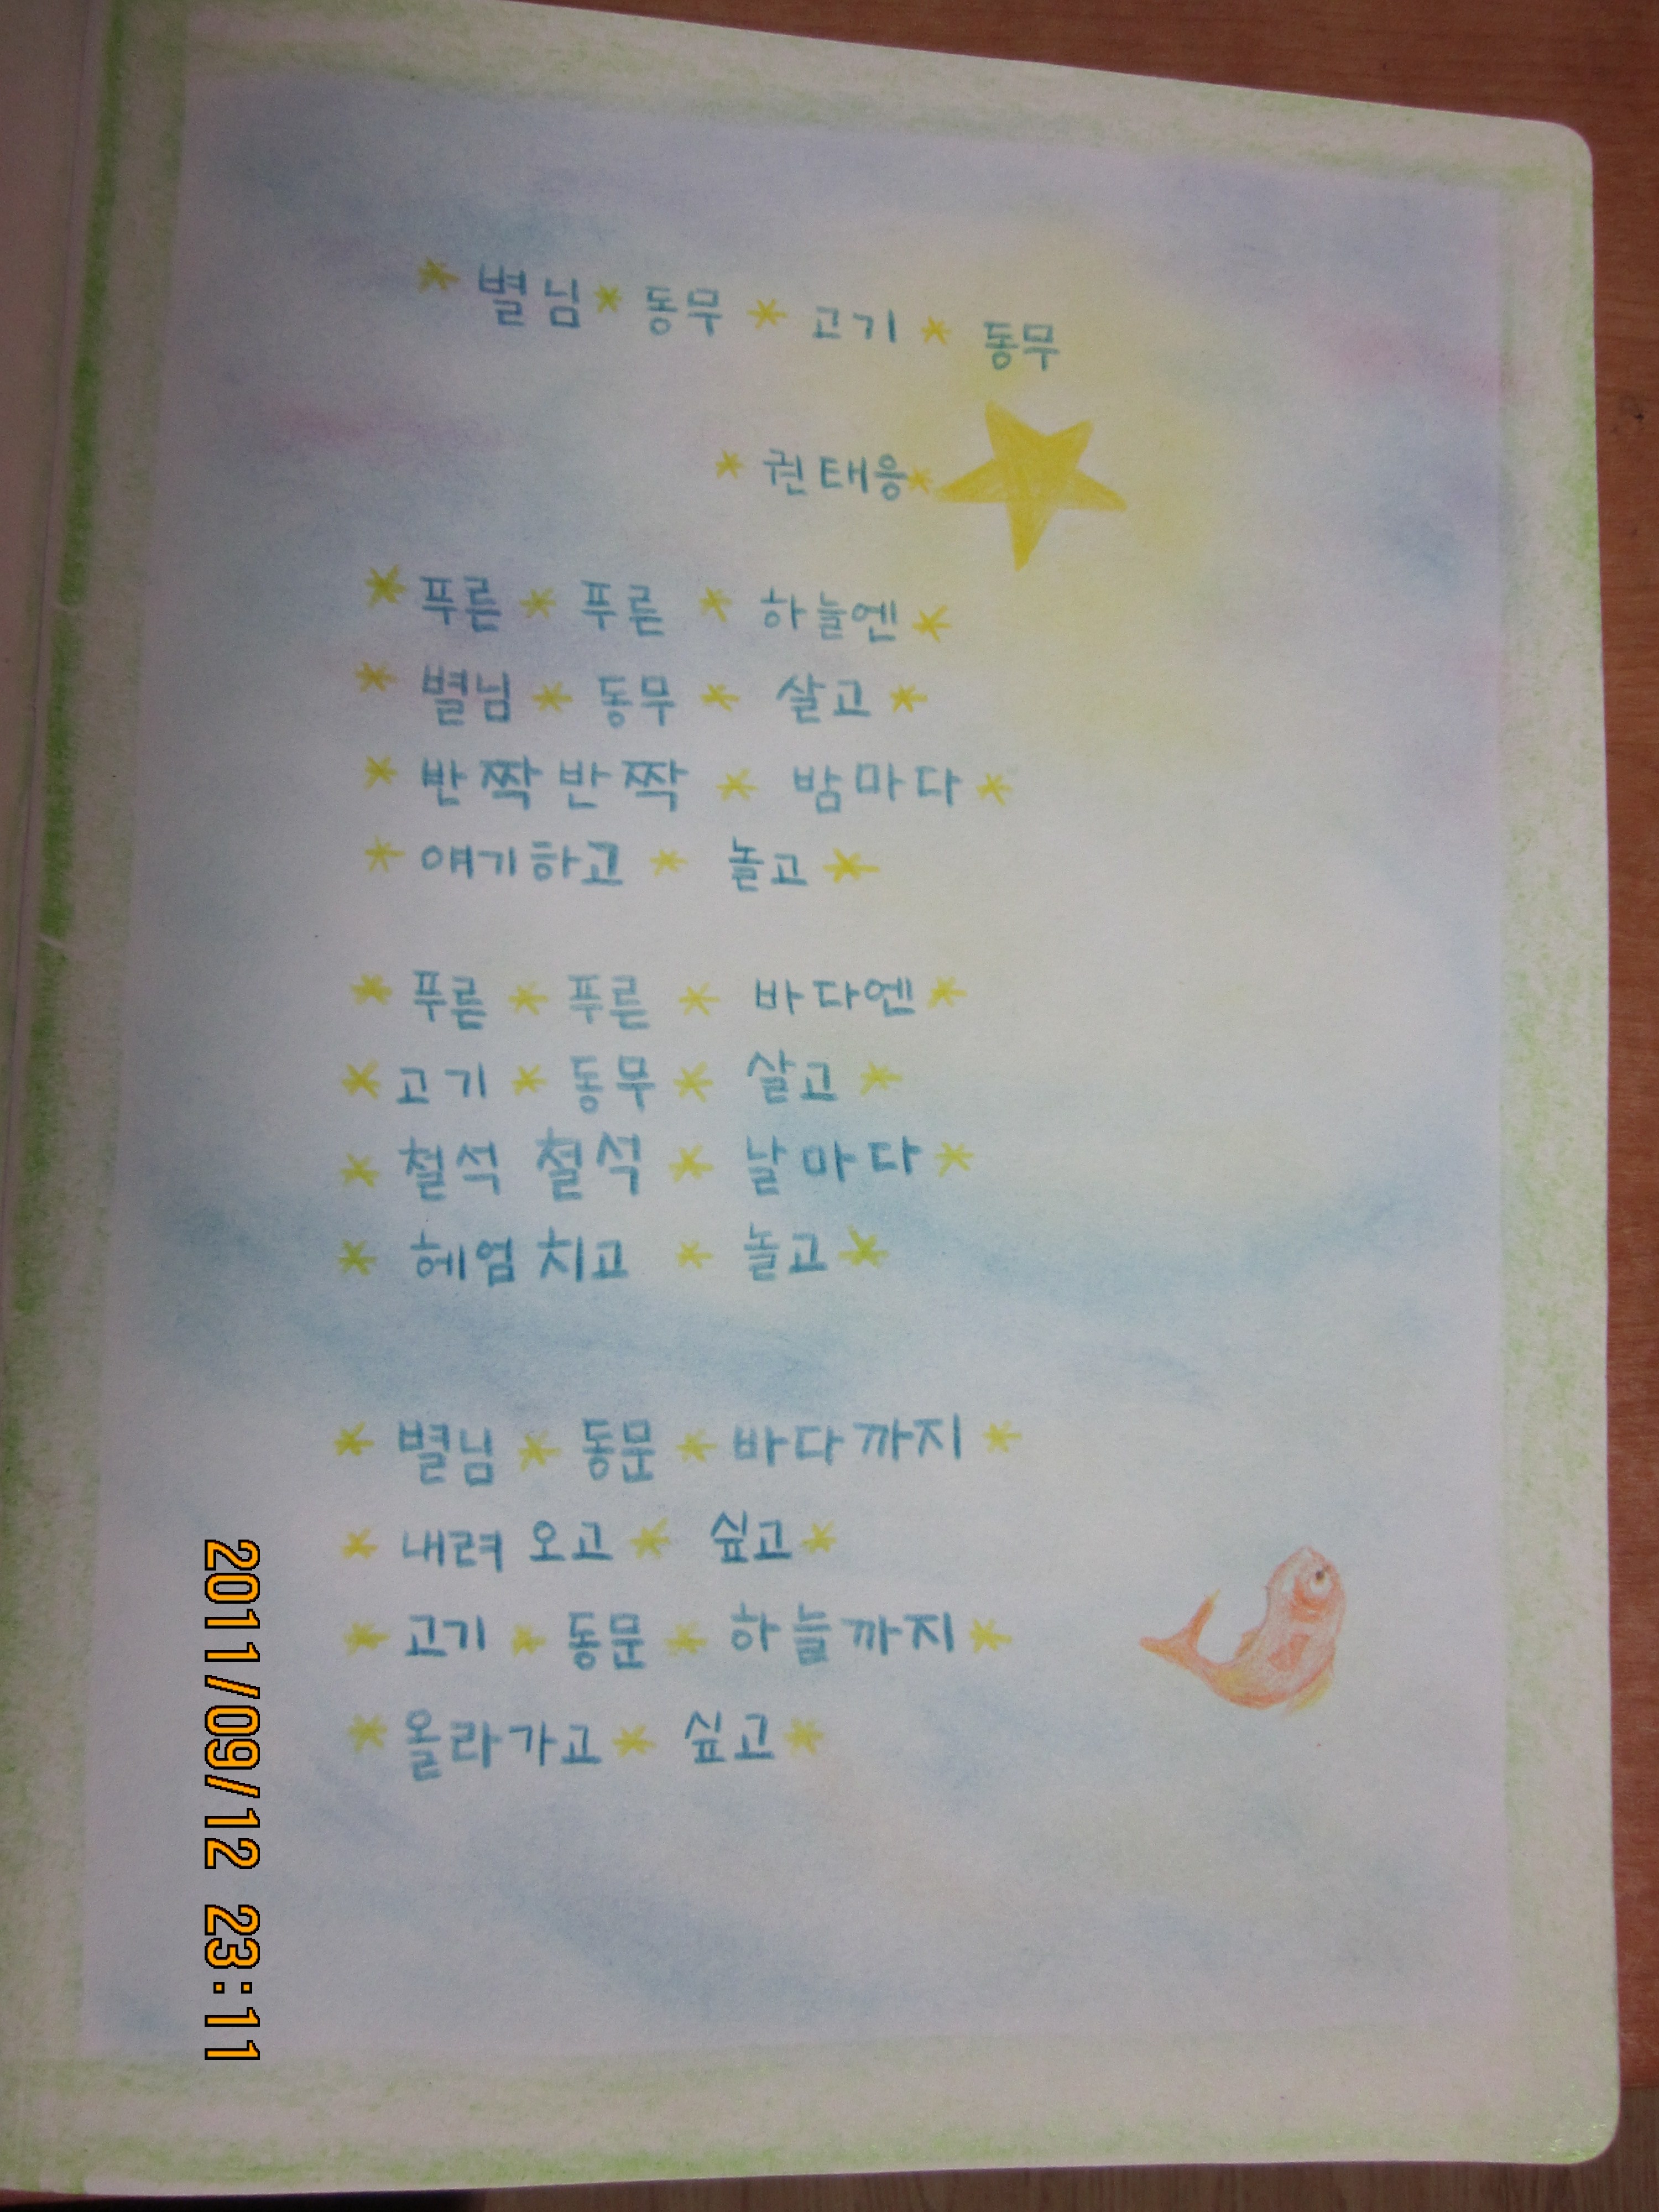 * 별님 * 동무 * 고기 * 동무
* 권태응 *
* 푸른 * 푸른 * 하늘엔 *
* 별님 * 동무 * 살고 *
* 반짝반짝 * 밤마다 *
* 얘기하고 * 놀고 *
* 푸른 * 푸른 * 바다엔 *
* 고기 * 동무 * 살고 *
* 철석 철석 * 날마다 *
* 헤엄 치고 * 놀고 *
* 별님 * 동문 * 바다까지 *
* 내려 오고 * 싶고 *
* 고기 * 동문 * 하늘까지 *
* 올라가고 * 싶고 *
2011/09/12 23:11